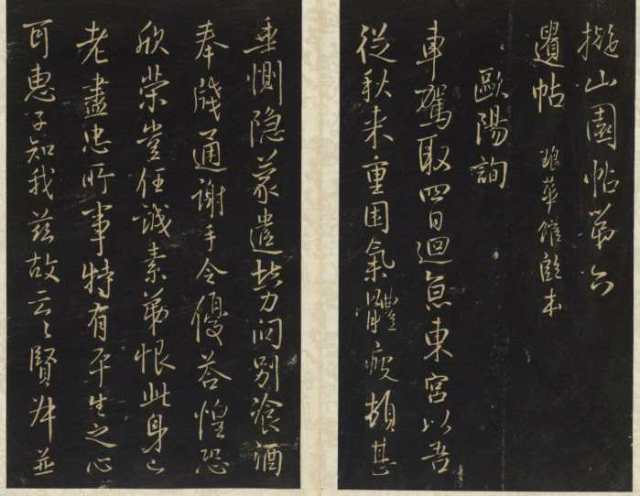 擬山園帖第六
遺帖 琅華館
歐陽詢
車駕取四日迴東宮以吾
從秋来重困氣體疲頓甚
垂惻隐蒙遣勞問別飡酒
奉牋通謝手令優荅惶恐
欣榮豈任誠素第恨此身已
老盡忠所事特有平生之心
耳惠子知我兹故云〻賢並